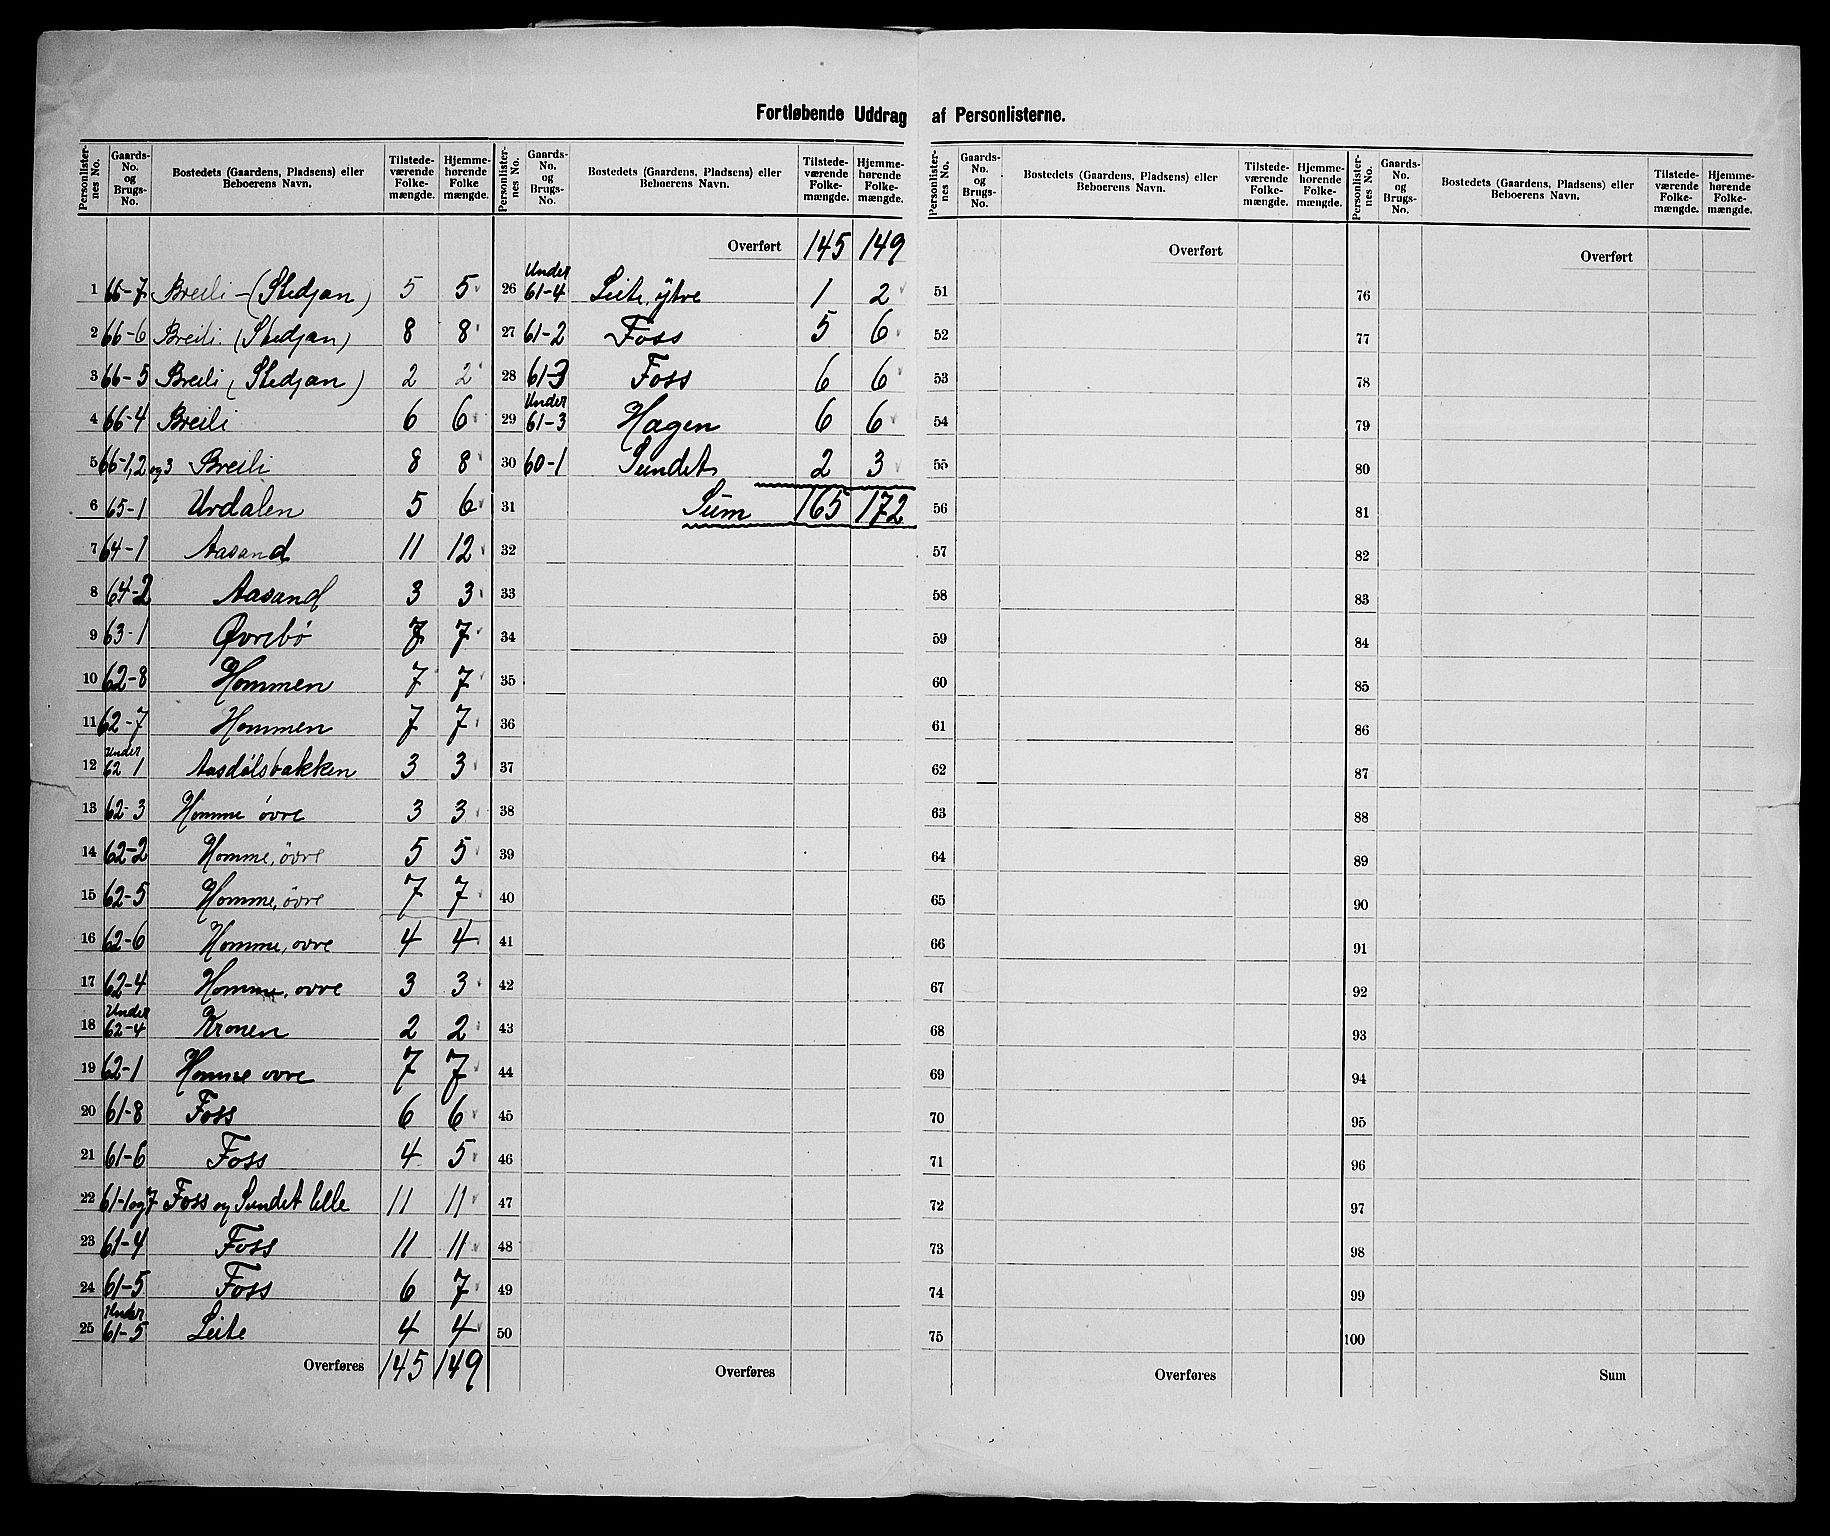 Fortløbende Uddrag af Personlisterne.
Personlister-nes No. Gaards-No. og Brugs-No. Bostedets (Gaardens, Pladsens) eller Beboerens Navn. Tilstede-værende Folke-mængde. Hjemme-hørende Folke mængde.
1 66-7 Breili - (Stedjan) 5 5
2 66-6 Breili. (Stedjan) 8 8
3 66-5 Breili (Stedjan) 2 2
4 66-4 Breili 6 6
5 66-1,2 og 3 Breili 8 8
6 65-1 Urdalen 5 6
7 64-1 Aasand 11 12
8 64-2 Aasand 3 3
9 63-1 Øvrebø 7 7
10 62-8 Hommen 7 7
11 62-7 Hommen 7 7
12 Under 62 1 Aasdølsbakken 3 3
13 62-3 Homme øvre 3 3
14 62-2 Homme, övre 5 5
15 62-5 Homme, övre 7 7
16 62-6 Homme, ovre 4 4
17 62-4 Homme, ovre 3 3
18 Under 62-4 Kronen 2 2
19 62-1 Homme ovre 7 7
20 61-8 Foss 6 6
21 61-6 Foss 4 5
22 61-1og7 Foss og Sundet lille 11 11
23 61-4 Foss 11 11
24 61-5 Foss 6 7
25 Under 61-5 Leite 4 4
Overføres 145 149
Personlister-nes No. Gaards-No. og Brugs-No. Bostedets (Gaardens, Pladsens) eller Beboerens Navn. Tilstede-værende Folke-mængde. Hjemme-hørende Folke-mængde.
Overført 145 149
26 Under 61-4 Leite, ytre 1 2
27 61-2 Foss 5 6
28 61-3 Foss 6 6
29 Under 61-3 Hagen 6 6
30 60-1 Sundet 2 3
31 Sum 165 172
32
33
34
35
36
37
38
39
40
41
42
43
44
45
46
47
48
49
50
Overføres
Personlister-nes No. Gaards-No. og Brugs-No. Bostedets (Gaardens, Pladsens) eller Beboerens Navn. Tilstede-værende Folke-mængde. Hjemme-hørende Folke-mængde.
Overført
51
52
53
54
55
56
57
58
59
60
61
62
63
64
65
66
67
68
69
70
71
72
73
74
75
Overføres
Personlister-nes No. Gaards-No. og Brugs-No. Bostedets (Gaardens, Pladsens) eller Beboerens Navn. Tilstede-værende Folke-mængde. Hjemme-hørende Folke-mængde.
Overført
76
77
78
79
80
81
82
83
84
85
86
87
88
89
90
91
92
93
94
95
96
97
98
99
100
Sum